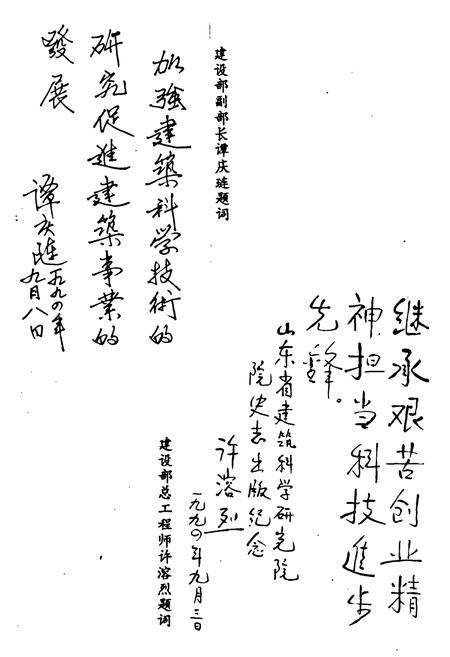 建设部副部长谭庆琏题词
加強建築科学技術的
研究促進建築事業的
發展
谭庆琏一九九〇年
九月八日
继承艰苦创业精
神担当科技進步
先锋。
山东省建筑科学研究院
院史志出版纪念
许溶烈
一九九〇年九月三日
建设部总工程师许溶烈题词